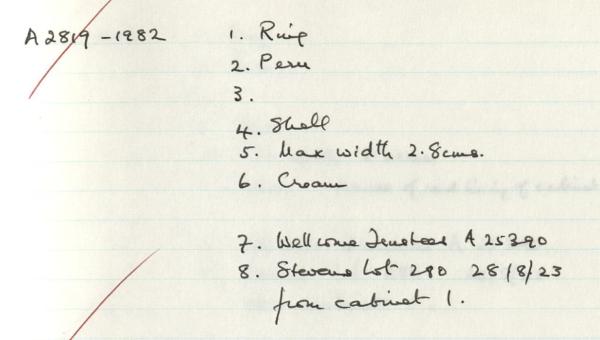 A 2819 - 1982 1. Ring
2. Peru
3.
4. Shell
5. Max width 2.8cms.
6. Cream
7. Wellcome Trustees A 25390
8. Stevens Lot 290 28/8/23
from cabinet 1.